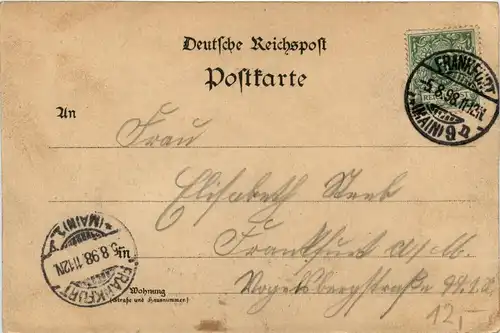 Deutsche Reichspost
Postkarte
An
Frau
Elisabeth
Frankfurt a/M.
Vogelsbergstraße 44. I.
in
Wohnung
(Straße und Hausnummer)
FRANKFURT
5.8.98.11-12N.
(MAIN) 9
FRANKFURT
5.8.98.11-12N.
* (MAIN) 1.
12,-